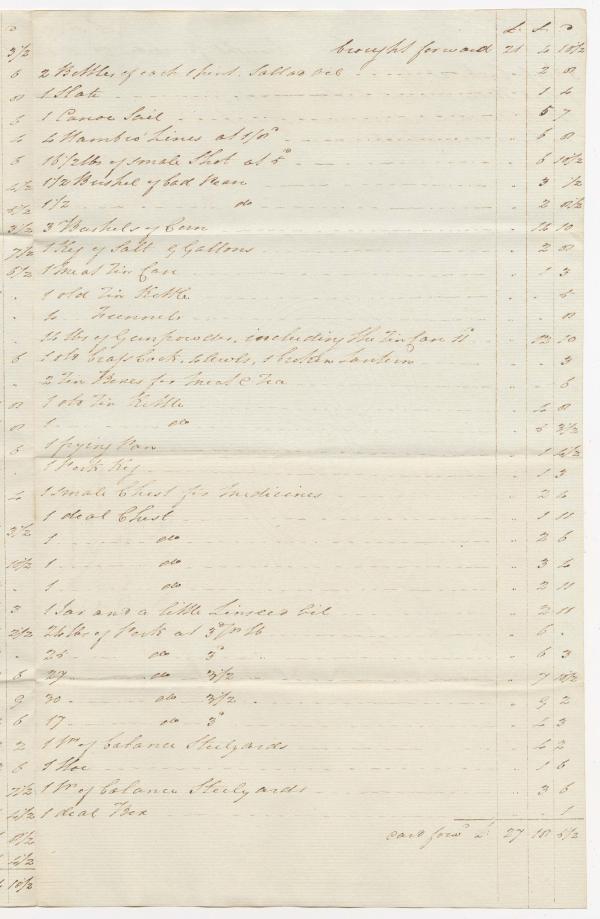 £ s d
brought forward 21 4 10½
2 Bottles of each 1 pint Sallad Oil 2 8
1 Slate 1 4
1 Canoe Sail 5 7
4 Hambro' Lines at 1/8 6 8
16½ lbs of small Shot at 5d 6 10½
1½ Bushel of bad Bean 3 ½
1½ do 2 8½
3 Bushels of Corn 14 10
1 Keg of Salt 9 Gallons 2 8
1 Meat Tin Can 1 3
1 old Tin Kettle
4 Funnels 8
14 lbs of Gunpowder, including the Tin Can 10
1 old brass Cock, 1 broken Lantern 3
2 Tin Boxes for Meat & Tea 6
1 old Tin Kettle 4 8
1 do 3½
1 frying Pan 1 4½
1 Pork Keg 1 3
1 small Chest for Medicines 2 4
1 deal Chest 1 11
1 do 2 6
1 do 3 4
1 do 2 11
1 Jar and a little Linseed Oil 2 11
24 lbs of Pork at 3d pr lb 6 .
25 do 3d 6 3
27 do 3½ 7 10½
30 do 3½ 9 2
17 do 3d 4 3
1 Pr of balance Steelyards 4 2
1 Hoe 1 6
1 Pr of balance Steelyards 3 6
1 deal Box 1
card forwd £ 27 18 5½